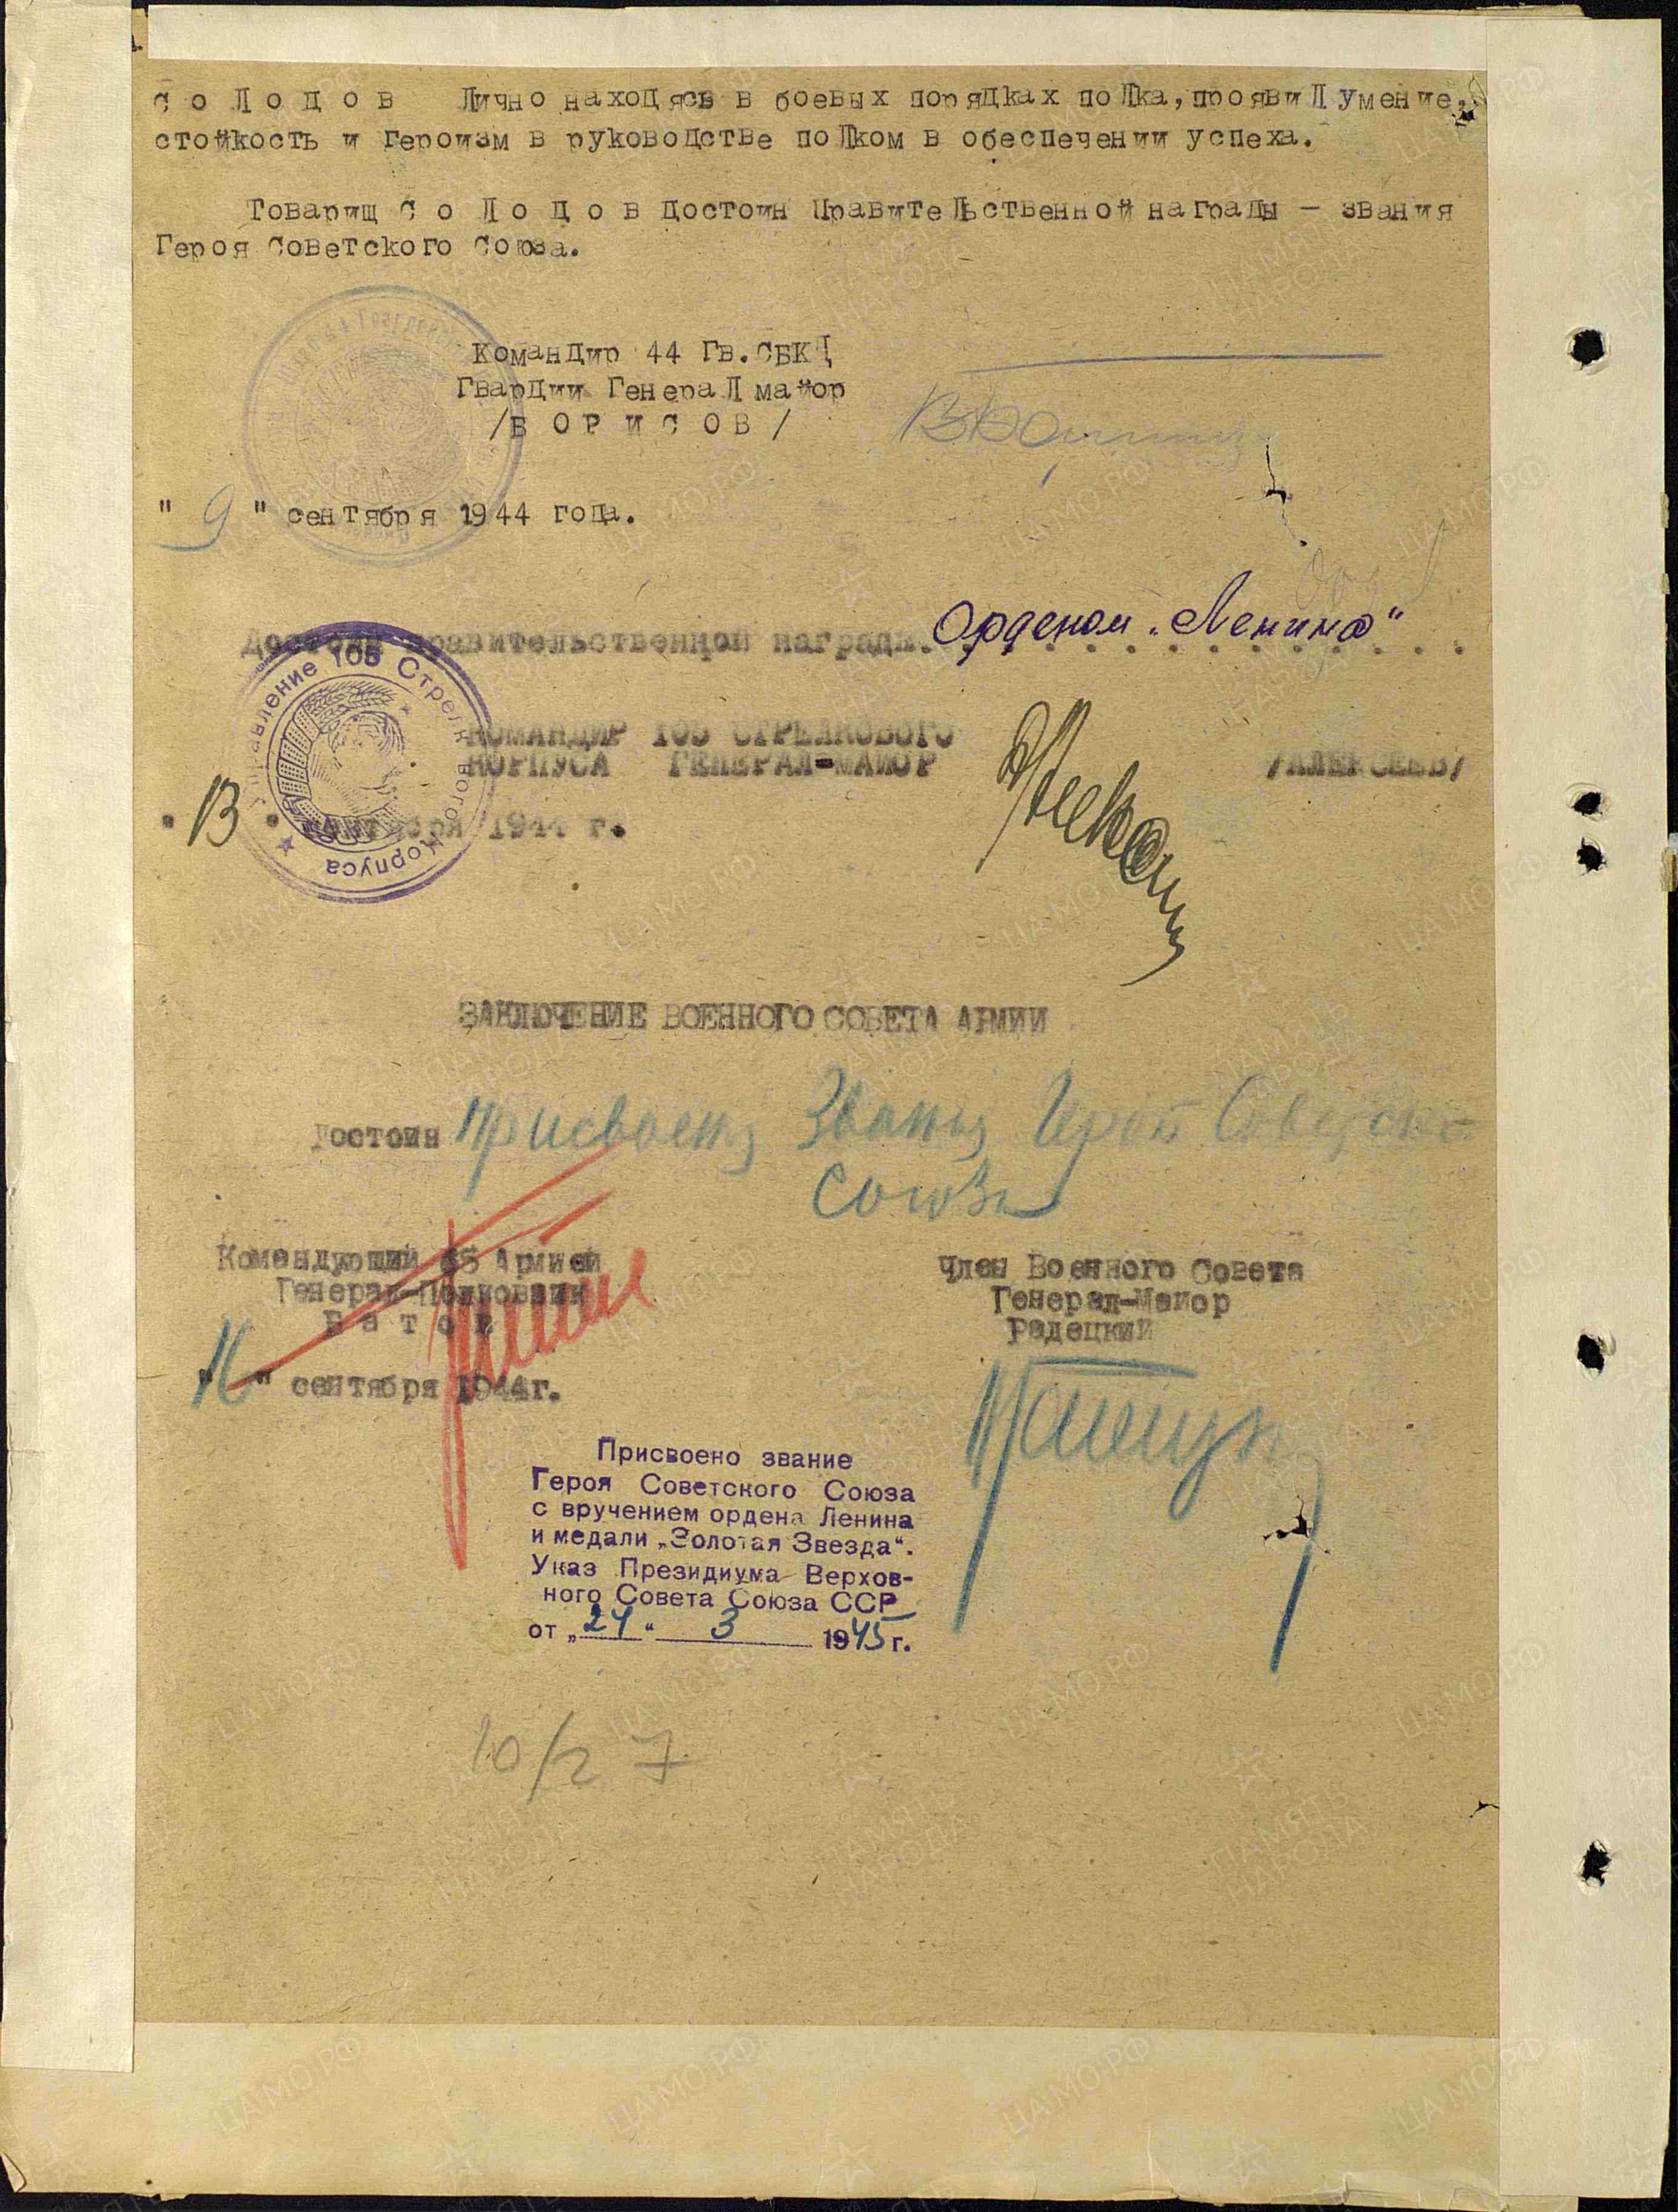 С о л о д о в лично находясь в боевых порядках полка, проявил умение,
стойкость и героизм в руководстве полком в обеспечении успеха.
Товарищ С о л о д о в достоин Правительственной награды – звания
Героя Советского Союза.
Командир 44 Гв.СБКД
Гвардии Генерал майор
/Б О Р И С О В/
" 9 " сентября 1944 года.
Достоин правительственной награды Орденом „Ленина"
Управление 105 Стрелкового Корпуса
КОМАНДИР 105 СТРЕЛКОВОГО
КОРПУСА ГЕНЕРАЛ-МАЙОР /АЛЕКСЕЕВ/
"13" сентября 1944 г.
ЗАКЛЮЧЕНИЕ ВОЕННОГО СОВЕТА АРМИИ
Достоин присвоения Звания Героя Советского
Союза
Командующий 65 Армией
Генерал-Полковник
Б а т о в
"16" сентября 1944г.
Член Военного Совета
Генерал-Майор
Радецкий
Присвоено звание
Героя Советского Союза
с вручением ордена Ленина
и медали „Золотая Звезда“.
Указ Президиума Верхов-
ного Совета Союза ССР
от „24“ 3 1945 г.
10/2 7
ЦАМО.РФ
ПАМЯТЬ
НАРОДА